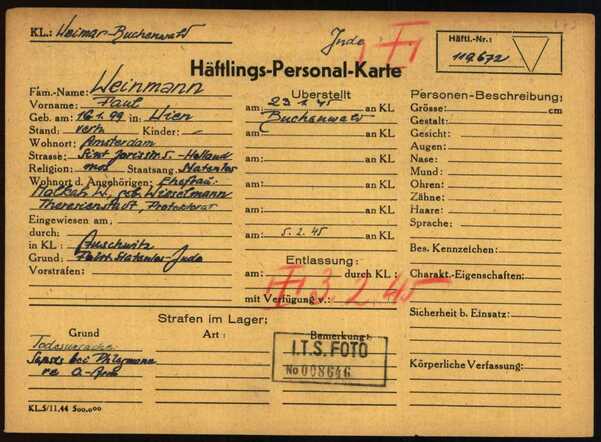 KL.: Weimar-Buchenwald
Jude
Häftl.-Nr.:
119672
Häftlings-Personal-Karte
Fam.-Name: Weinmann
Vorname: Paul
Geb. am: 16.1.99 in Wien
Stand: verh. Kinder: -
Wohnort: Amsterdam
Strasse: Sint Jorisstr. 5. - Holland
Religion: mos. Staatsang. Staatenlos
Wohnort d. Angehörigen: Ehefrau:
Malkah W., geb. Wieselmann
Theresienstadt, Protektorat
Eingewiesen am:
durch:
in KL: Auschwitz
Grund: Polit. Staatenlos-Jude
Vorstrafen:
Überstellt
am: 23.1.45 an KL
Buchenwald
am: an KL
am: an KL
am: an KL
am: an KL
am: 5.2.45 an KL
Entlassung:
am: durch KL:
mit Verfügung v.:
3.2.45
Personen-Beschreibung:
Grösse: cm
Gestalt:
Gesicht:
Augen:
Nase:
Mund:
Ohren:
Zähne:
Haare:
Sprache:
Bes. Kennzeichen:
Charakt.-Eigenschaften:
Sicherheit b. Einsatz:
Körperliche Verfassung:
Strafen im Lager:
Grund Art: Bemerkung:
Todesursache:
Sepsis bei Phlegmone
re O-Arm
I.T.S. FOTO
No 008646
KL.5/11.44 500.000